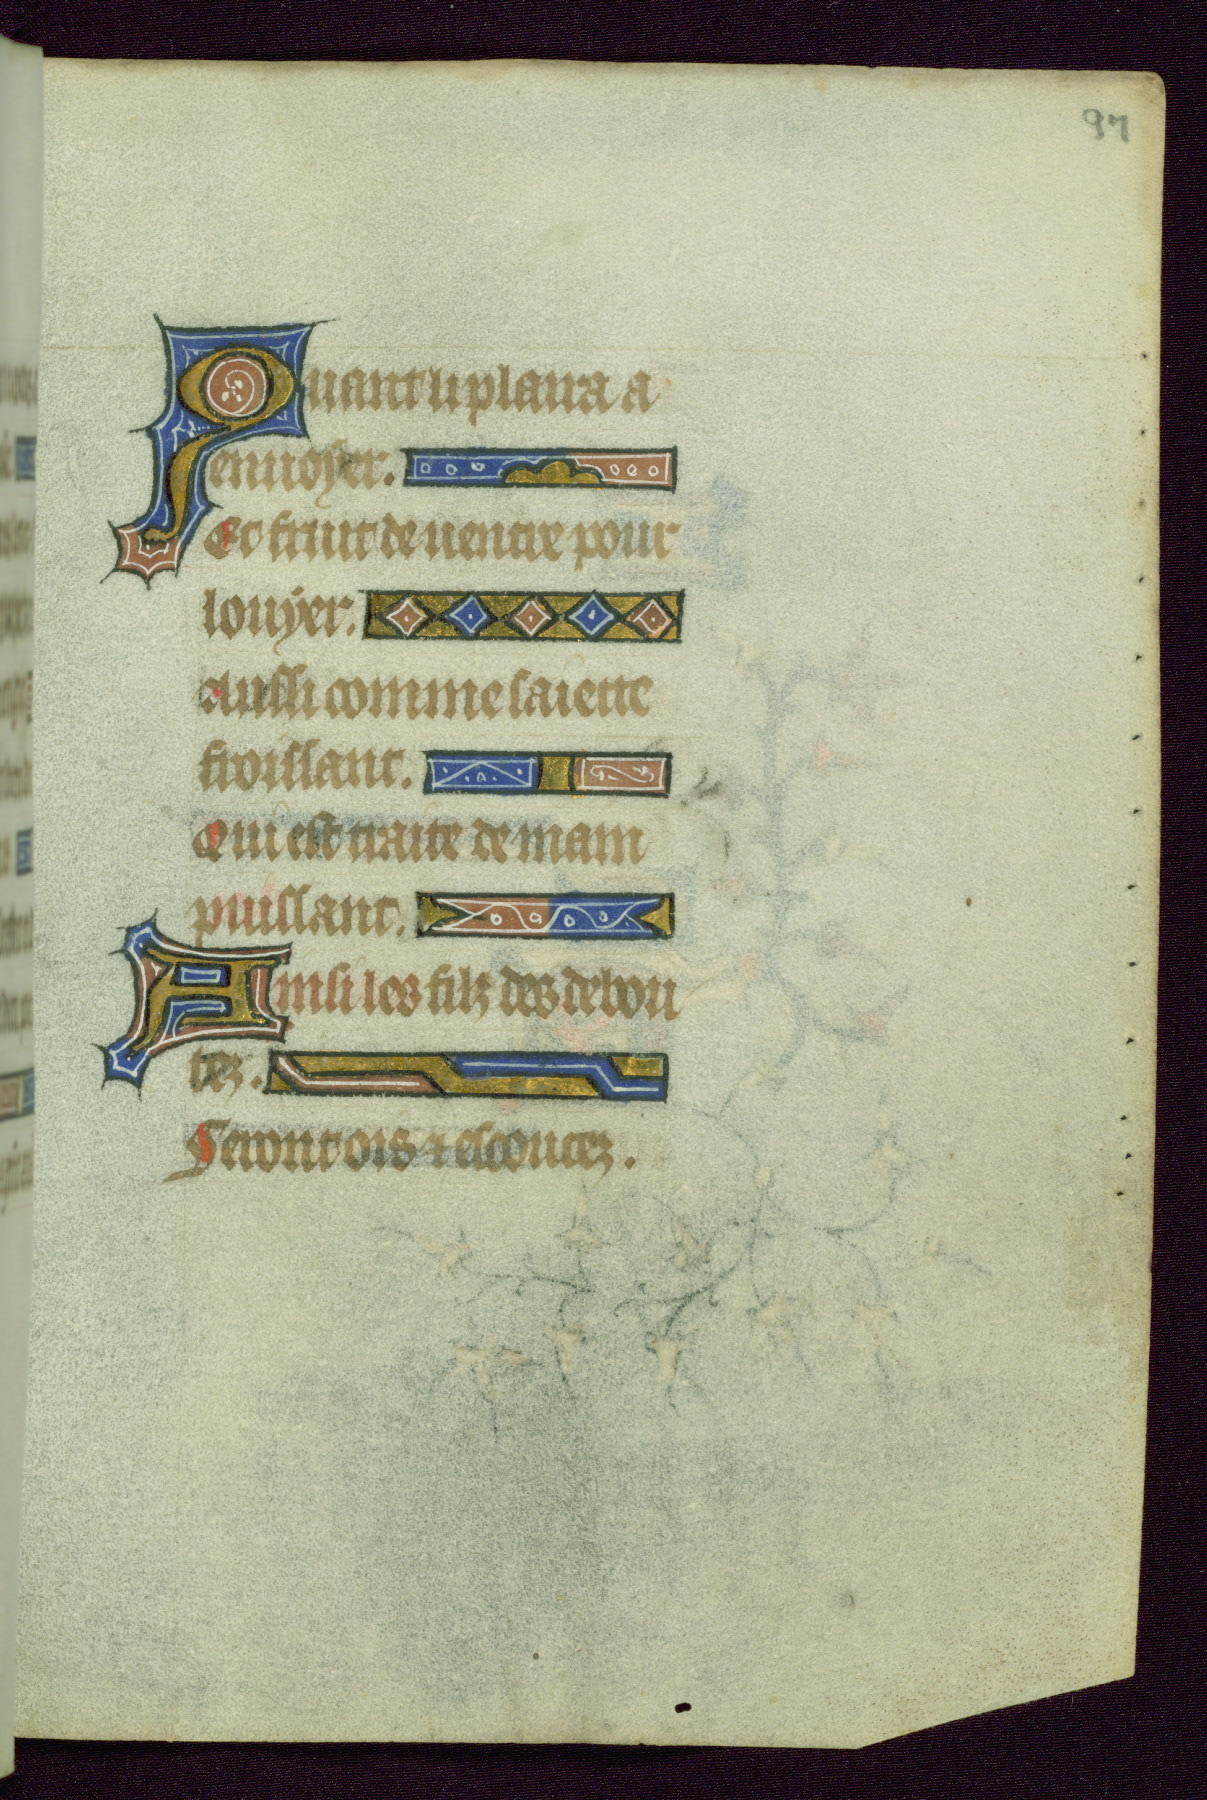 97
Quant li plaira a
enuoyer.
Et fruit de uentre pour
louyer.
Aussi comme saiette
froissant.
Qui est traite de main
puissant.
Ainsi les filz des debou
tez.
Seront ois ⁊ escoutez.